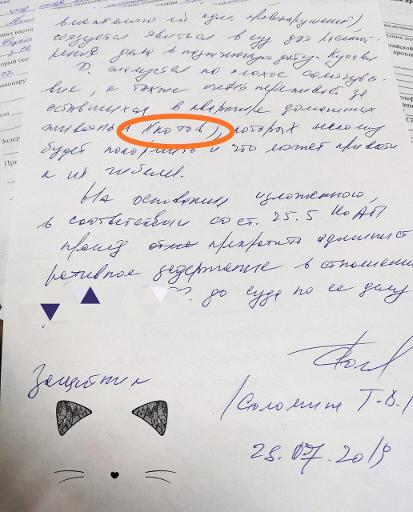 обязуется явиться в суд для рассмот-
рения дела в назначенную дату. Кудаева
жалуется на плохое самочувс-
вие, а также очень переживает за
оставшихся в квартире домашних
животных (котов), которых некому
будет покормить и что может привести
к их гибели.
На основании изложенного,
в соответствии со ст. 25.5 КоАП
прошу прекратить админист
ративное задержание в отношении
до суда по ее делу
Защитник
/Соломина Т.В./
28.07.2019